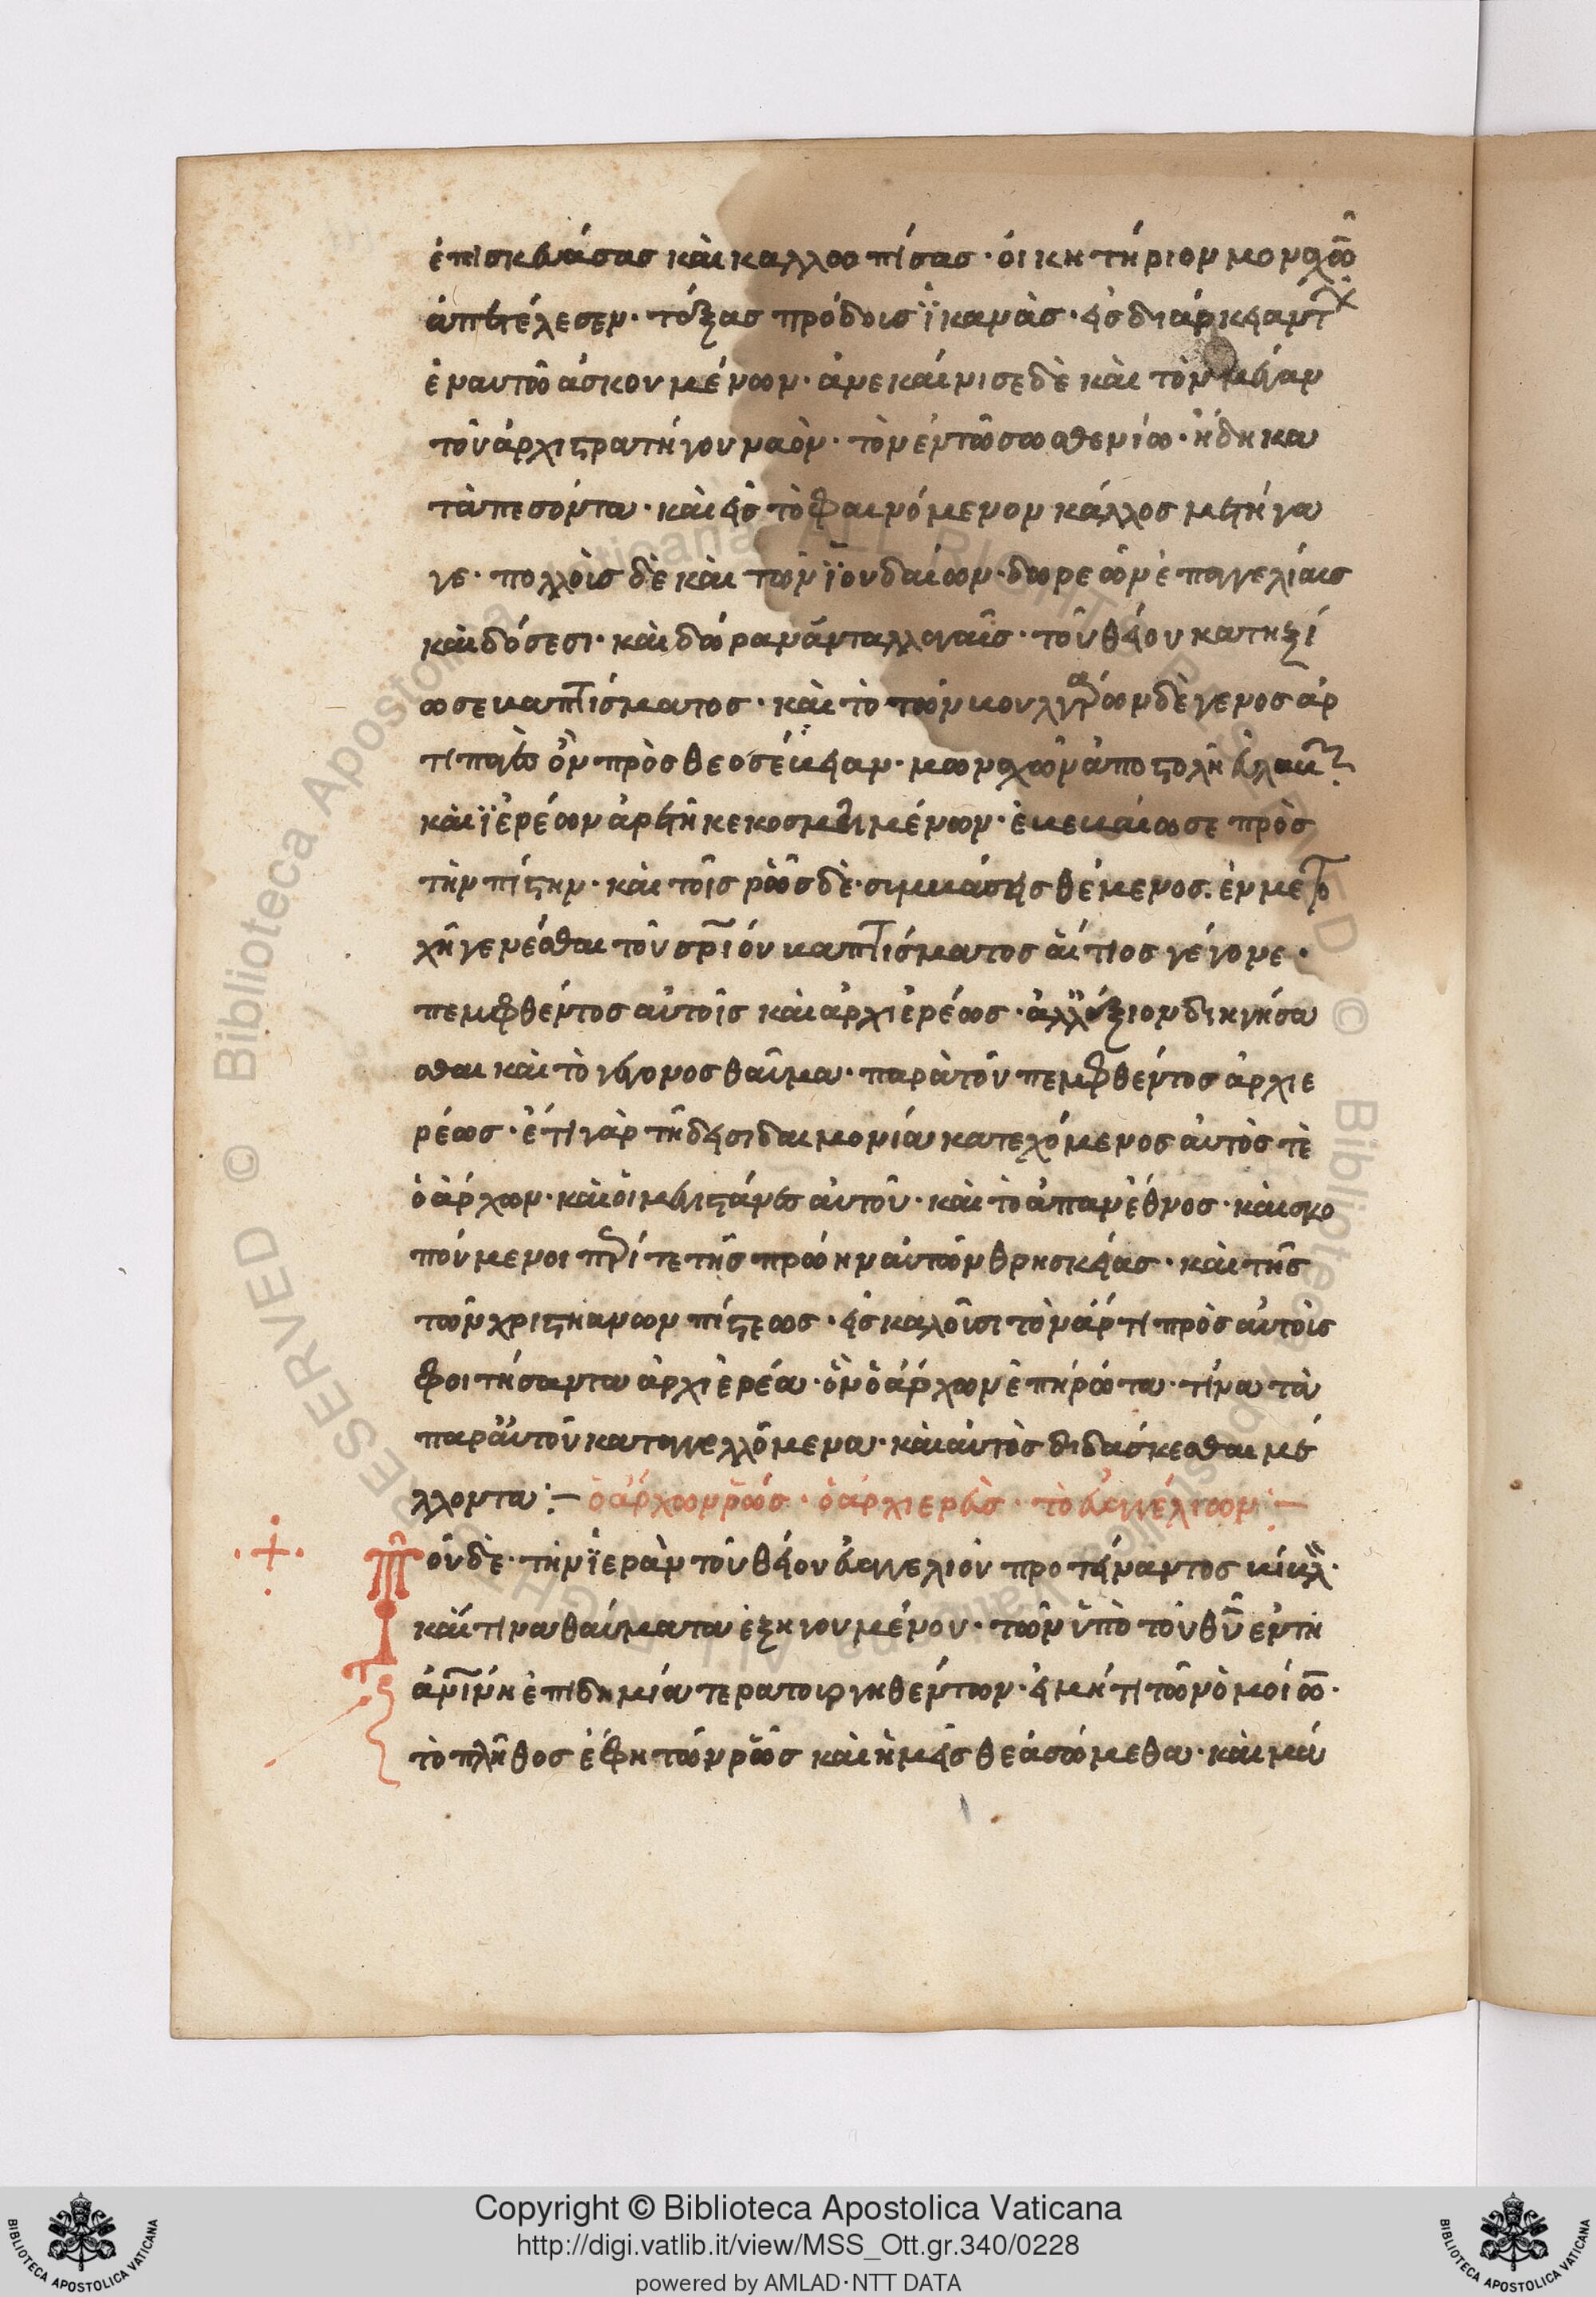 ἐπισκευάσας καὶ καλλοπίσας · οἰκητήριον μοναχῶ
ἀπετέλεσεν · τάξας προόδοις ἱκανὰς · εἰς διάρκειαν τ
ἐν αυτῶ ἀσκουμένων · ἀνεκαίνισε δὲ καὶ τὸν μέγαν
τοῦ ἀρχιστρατήγου ναὸν · τὸν ἐν τῶ σωσθενίω · ἤδη κα
ταπεσόντα · καὶ εἰς τὸ φαινόμενον κάλλος μετήγα
γε · πολλοὶς δὲ καὶ τῶν ϊουδαίων · δωρεῶν ἐπαγγελίαις
καὶ δόσεσι · καὶ δώρων ἀνταλλαγαῖς · τοῦ θείου κατηξί
ωσε βαπτίσματος · καὶ τὸ τῶν βουλγάρων δὲ γενος ἀρ
τιπαγὲς ὂν πρὸς θεοσέβειαν · μοναχῶν ἀποστολῆ
καὶ ϊερέων ἀρετῆ κεκοσμημένων · ἐβεβαίωσε πρὸς
τὴν πίστην · καὶ τοῖς ρῶς δὲ · συμβάσεις θέμενος · ἐν μετο
χῆ γενέσθαι τοῦ σρίου βαπτίσματος αἴτιος γέγονε ·
πεμφθέντος αὐτοῖς καὶ ἀρχιερέως · ἀλλ' ἄξιον διηγήσα
σθαι καὶ τὸ γεγονος θαῦμα · παρὰ τοῦ πεμφθέντος ἀρχιε
ρέως · ἔτι γὰρ τῆ δεισιδαιμονία κατεχόμενος αὐτὸς τὲ
ὁ ἄρχων · καὶ οἱ μεγιστάνες αὐτοῦ · καὶ τὸ ἄπαν ἔθνος · καὶ σκο
πούμενοι περί τε τῆς πρώην αὐτῶν θρησκείας · καὶ τῆς
τῶν χριστηανων πίστεως · εἰσκαλοῦσι τὸν ἄρτι πρὸς αὐτοὶς
φοιτήσαντα ἀρχιερέα · ὃν ὁ ἄρχων ἐπηρώτα · τίνα τὰ
παρ' αὐτοῦ καταγγελλόμενα · καὶ αὐτὸς διδάσκεσθαι μέ
λλοντα :— ὁ ἄρχων ρῶς · ὁ ἀρχιερεὺς · τὸ εὐαγγέλιων :—
Τοῦ δὲ · τὴν ϊερὰν τοῦ θείου εὐαγγελίου προτείναντος βίβλ ·
καί τινα θαύματα ἐξηγουμένου · τῶν ὑπὸ τοῦ θῦ ἐν τη
ἀνίνη ἐπιδημία τερατουργηθέντων · εἰ μή τι τῶν ὁμοίω ·
τὸ πλῆθος ἔφη τῶν ρῶς καὶ ἡμεῖς θεασώμεθα · καὶ μά
Copyright © Biblioteca Apostolica Vaticana
http://digi.vatlib.it/view/MSS_Ott.gr.340/0228
powered by AMLAD·NTT DATA